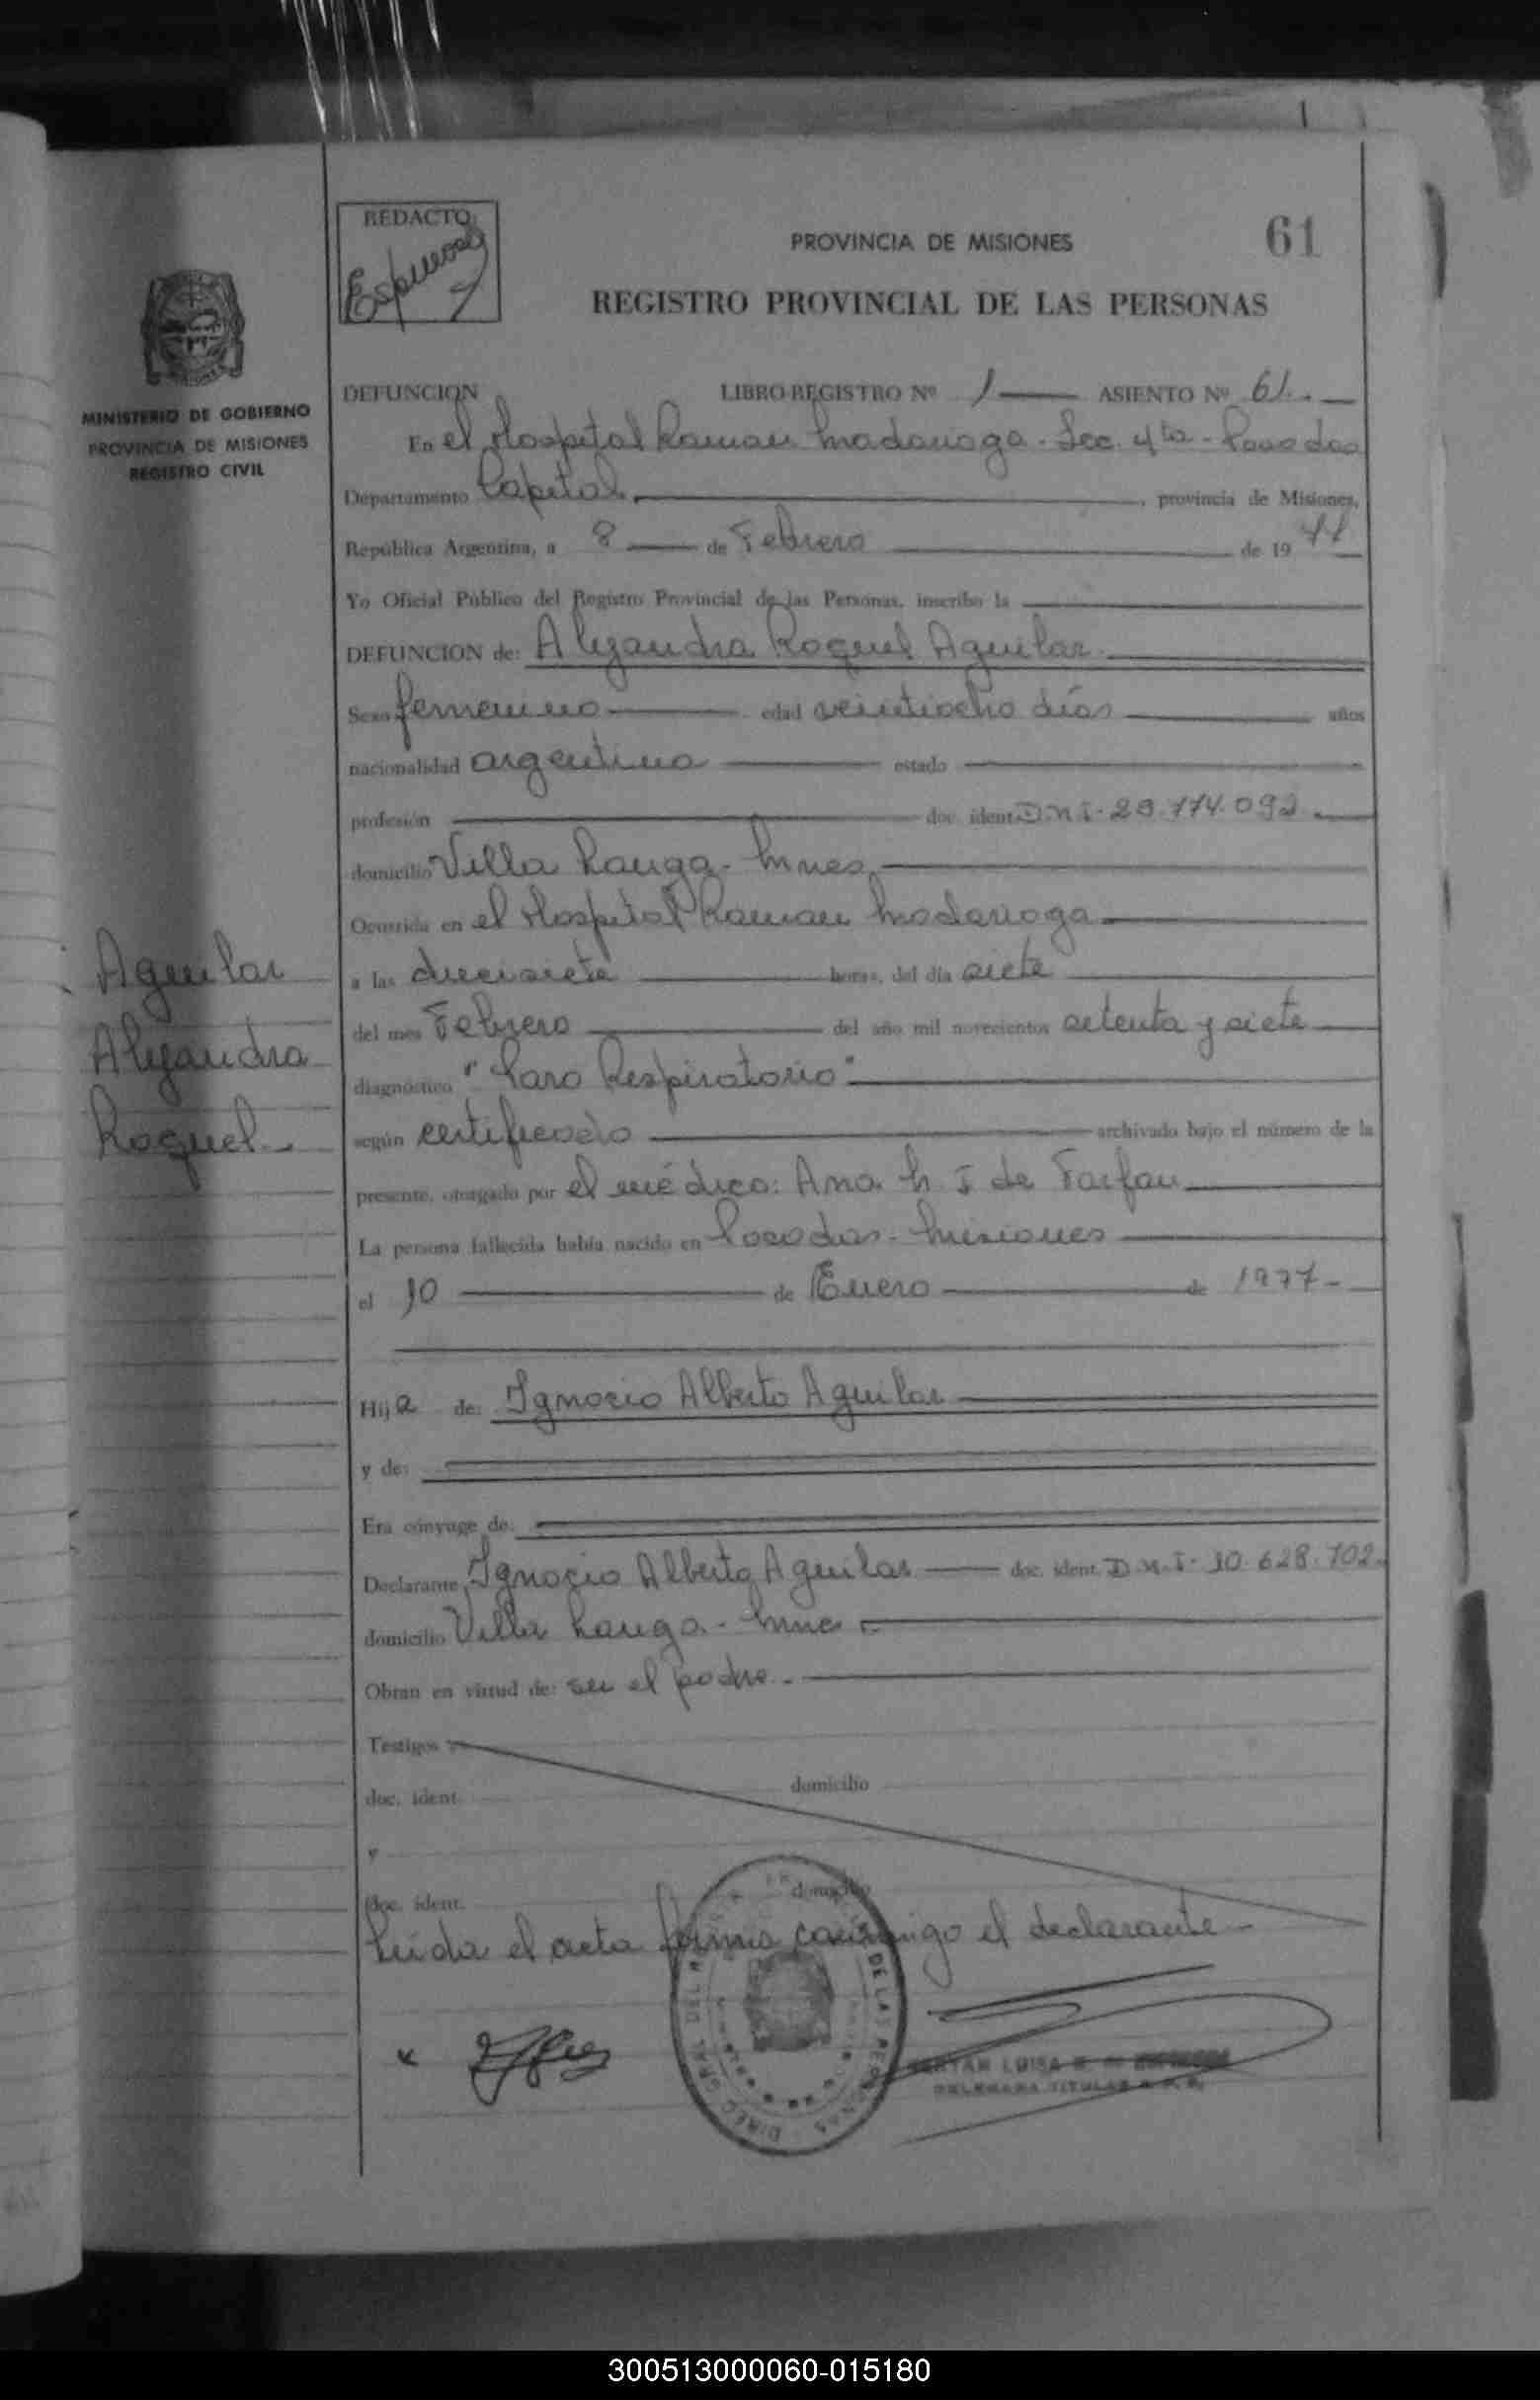 REDACTO
Espinosa
PROVINCIA DE MISIONES
61
REGISTRO PROVINCIAL DE LAS PERSONAS
MINISTERIO DE GOBIERNO
PROVINCIA DE MISIONES
REGISTRO CIVIL
DEFUNCION LIBRO-REGISTRO Nº 1 ASIENTO Nº 61
En el Hospital Ramon Madariaga - Sec. 4ta - Posadas
Departamento Capital, provincia de Misiones,
República Argentina, a 8 de Febrero de 1977
Yo Oficial Público del Registro Provincial de las Personas, inscribo la
DEFUNCION de: Alejandra Raquel Aguilar
Sexo femenino edad veintiocho días años
nacionalidad argentina estado
profesión doc. ident. D.N.I. 25.774.092
domicilio Villa Langa - Mnes
Ocurrida en el Hospital Ramon Madariaga
Aguilar
Alejandra
Raquel
a las diecisiete horas, del día siete
del mes Febrero del año mil novecientos setenta y siete
diagnóstico "Paro Respiratorio"
según certificado archivado bajo el número de la
presente, otorgado por el médico: Ana M. I de Farfan
La persona fallecida había nacido en Posadas - Misiones
el 10 de Enero de 1977-
Hija de: Ignacio Alberto Aguilar
y de:
Era cónyuge de:
Declarante Ignacio Alberto Aguilar doc. ident. D.N.I. 10.628.702
domicilio Villa Langa - Mnes
Obran en virtud de: ser el padre.
Testigos
doc. ident. domicilio
y
doc. ident. domicilio
Leída el acta firma conmigo el declarante
DIREC. GRAL. DEL DE LAS PERSONAS
LUISA
DELEGADA TITULAR
300513000060-015180